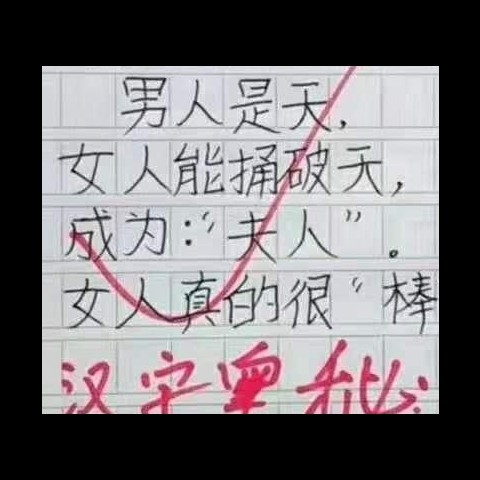 男人是天，
女人能捅破天，
成为：“夫人”。
女人真的很“棒
汉字奥秘：